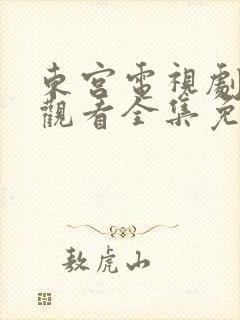 東宮電視劇
觀看全集免
敖虎山